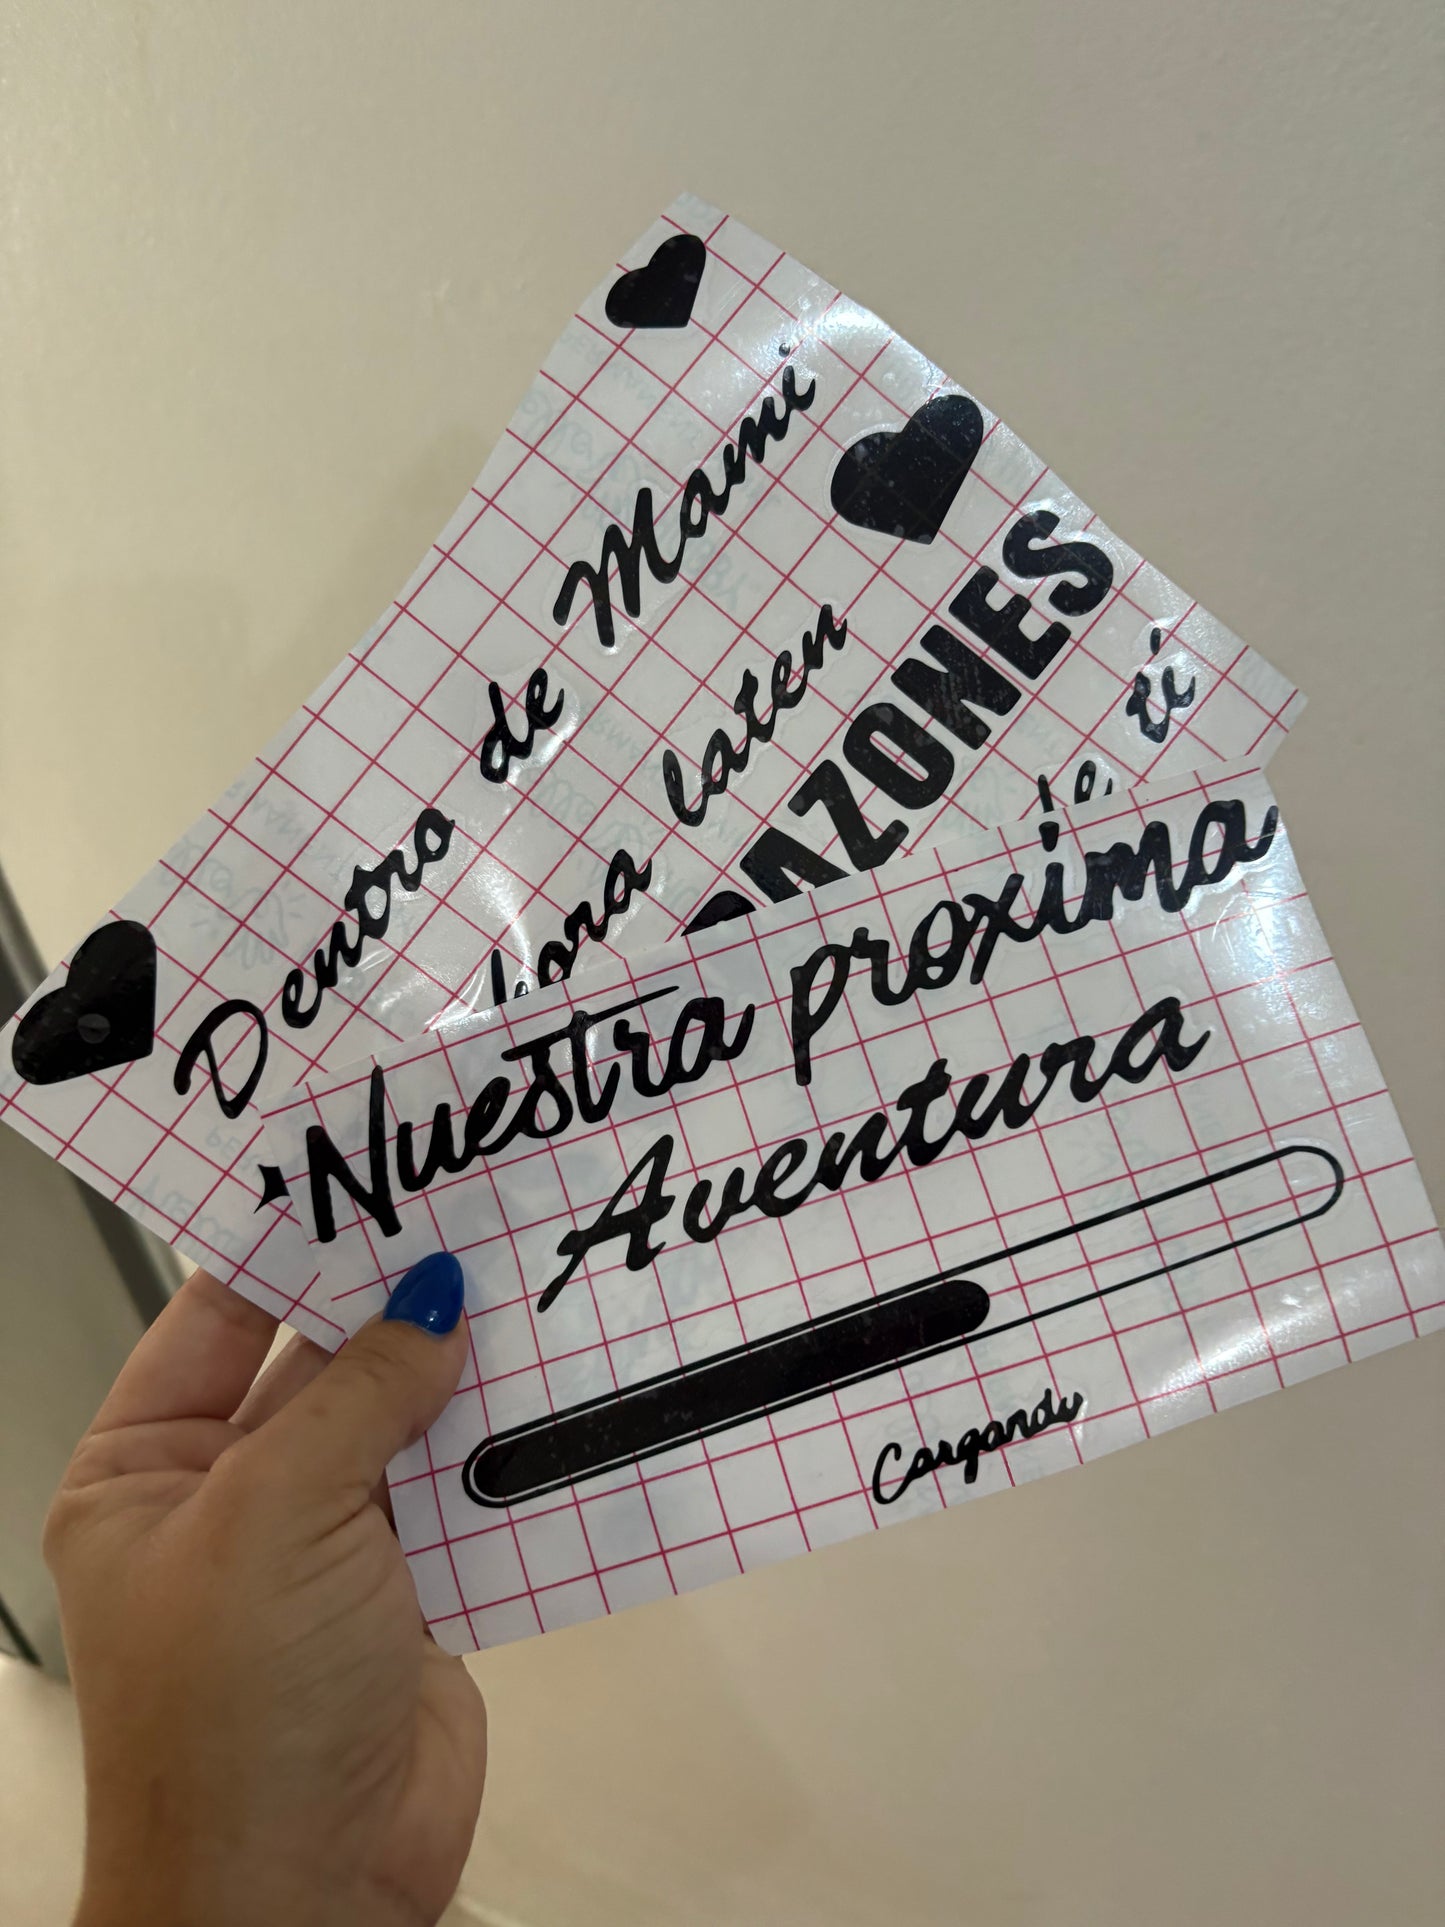 Dentro de Mami
hora laten
RAZONES
de ti
Nuestra proxima
Aventura
Cargando